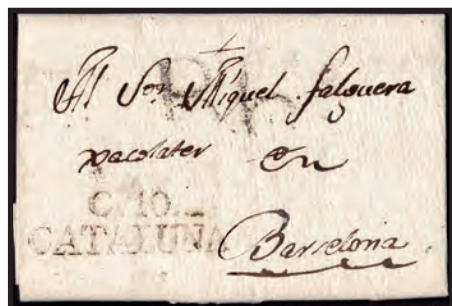 Al Sor. Miquel falguera
xacolater en
C. 10..
CATALUÑA
Barselona